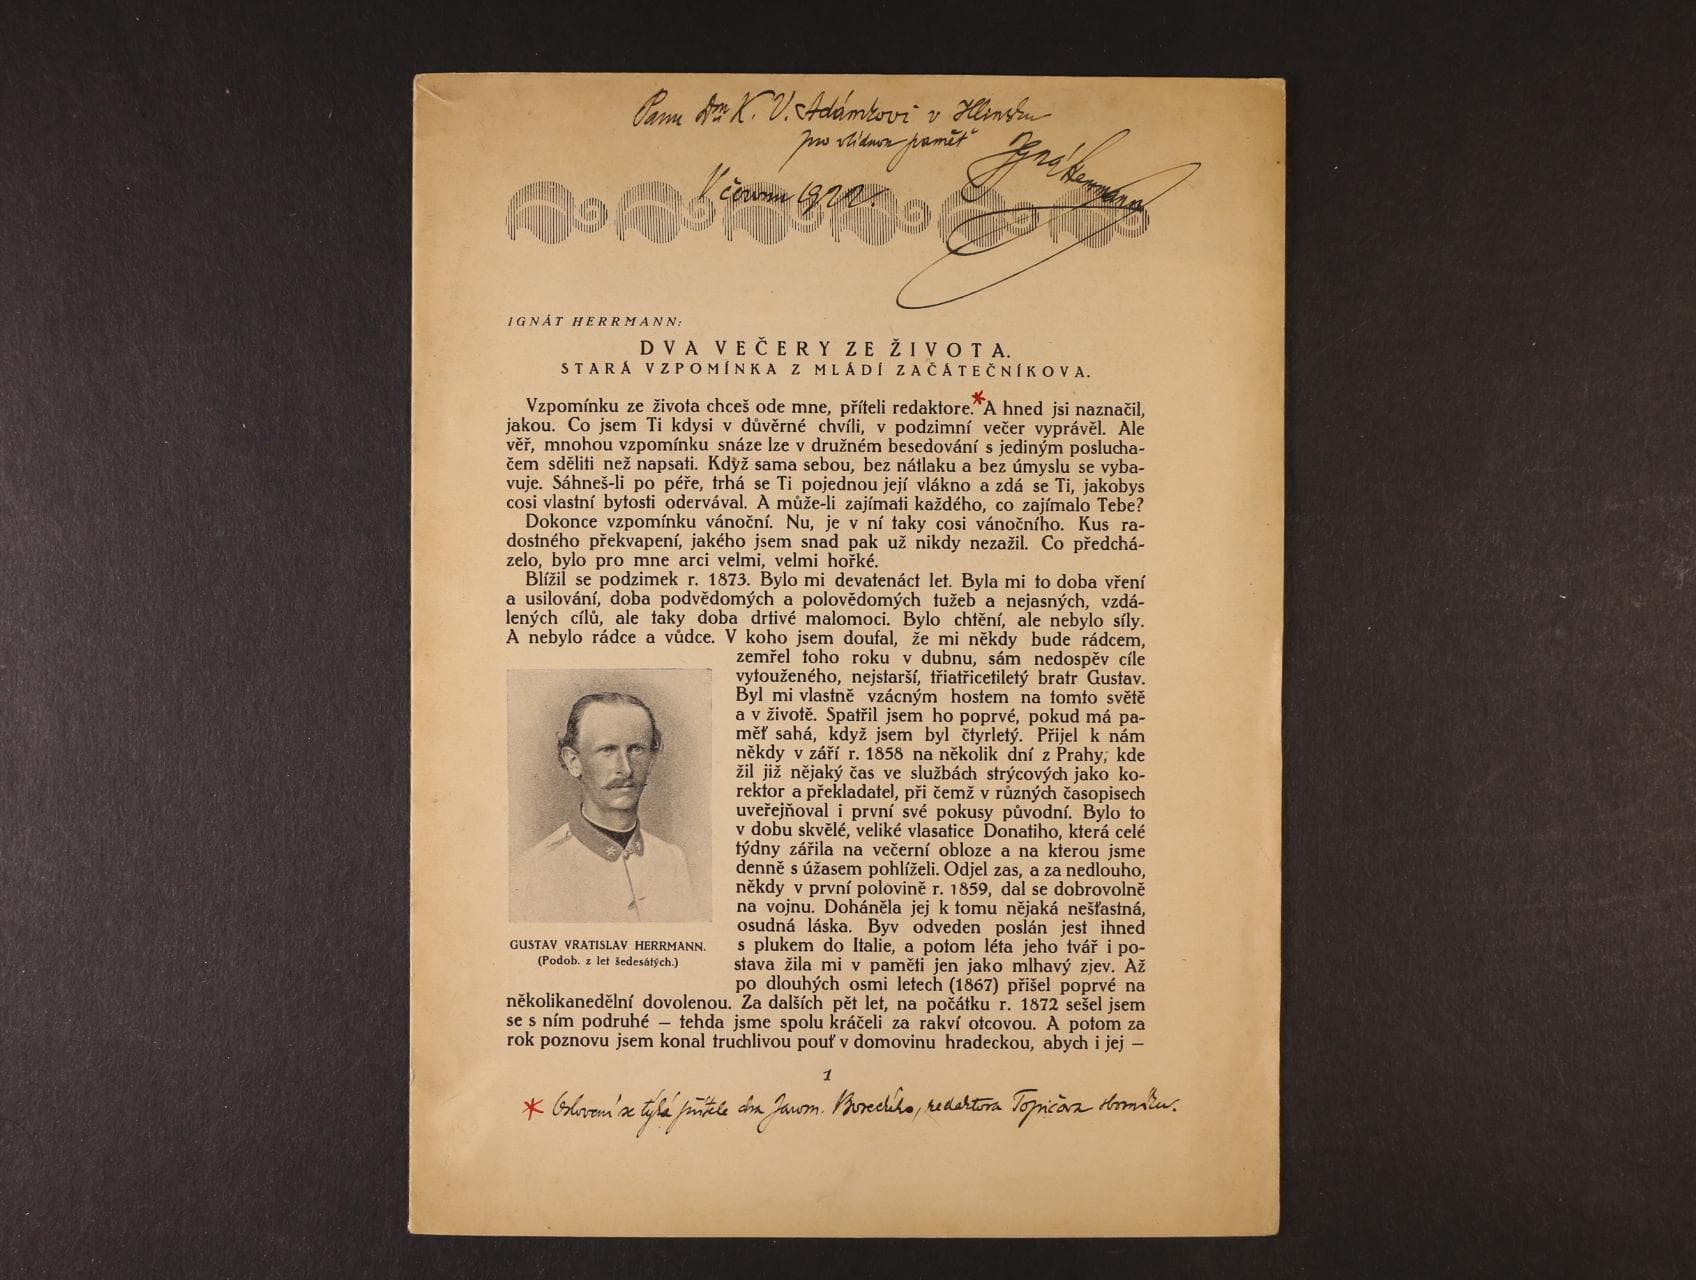 Panu Dru K. V. Adámkovi v Hlinsku
pro vlídnou paměť
Ignát Herrmann
V červnu 1922.
IGNÁT HERRMANN:
DVA VEČERY ZE ŽIVOTA.
STARÁ VZPOMÍNKA Z MLÁDÍ ZAČÁTEČNÍKOVA.
Vzpomínku ze života chceš ode mne, příteli redaktore.* A hned jsi naznačil,
jakou. Co jsem Ti kdysi v důvěrné chvíli, v podzimní večer vyprávěl. Ale
věř, mnohou vzpomínku snáze lze v družném besedování s jediným poslucha-
čem sděliti než napsati. Když sama sebou, bez nátlaku a bez úmyslu se vyba-
vuje. Sáhneš-li po péře, trhá se Ti pojednou její vlákno a zdá se Ti, jakobys
cosi vlastní bytosti odervával. A může-li zajímati každého, co zajímalo Tebe?
Dokonce vzpomínku vánoční. Nu, je v ní taky cosi vánočního. Kus ra-
dostného překvapení, jakého jsem snad pak už nikdy nezažil. Co předchá-
zelo, bylo pro mne arci velmi, velmi hořké.
Blížil se podzimek r. 1873. Bylo mi devatenáct let. Byla mi to doba vření
a usilování, doba podvědomých a polovědomých tužeb a nejasných, vzdá-
lených cílů, ale taky doba drtivé malomoci. Bylo chtění, ale nebylo síly.
A nebylo rádce a vůdce. V koho jsem doufal, že mi někdy bude rádcem,
zemřel toho roku v dubnu, sám nedospěv cíle
vytouženého, nejstarší, třiatřicetiletý bratr Gustav.
Byl mi vlastně vzácným hostem na tomto světě
a v životě. Spatřil jsem ho poprvé, pokud má pa-
měť sahá, když jsem byl čtyrletý. Přijel k nám
někdy v září r. 1858 na několik dní z Prahy, kde
žil již nějaký čas ve službách strýcových jako ko-
rektor a překladatel, při čemž v různých časopisech
uveřejňoval i první své pokusy původní. Bylo to
v dobu skvělé, veliké vlasatice Donatiho, která celé
týdny zářila na večerní obloze a na kterou jsme
denně s úžasem pohlíželi. Odjel zas, a za nedlouho,
někdy v první polovině r. 1859, dal se dobrovolně
na vojnu. Doháněla jej k tomu nějaká nešťastná,
osudná láska. Byv odveden poslán jest ihned
s plukem do Italie, a potom léta jeho tvář i po-
stava žila mi v paměti jen jako mlhavý zjev. Až
po dlouhých osmi letech (1867) přišel poprvé na
několikanedělní dovolenou. Za dalších pět let, na počátku r. 1872 sešel jsem
se s ním podruhé — tehda jsme spolu kráčeli za rakví otcovou. A potom za
rok poznovu jsem konal truchlivou pouť v domovinu hradeckou, abych i jej —
GUSTAV VRATISLAV HERRMANN.
(Podob. z let šedesátých.)
1
* Oslovení se týká přítele dra Jarom. Boreckého, redaktora Topičova sborníku.